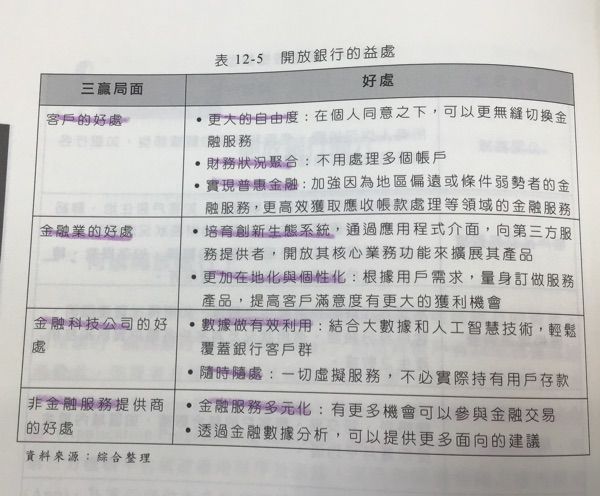 表 12-5 開放銀行的益處
三贏局面
好處
客戶的好處
• 更大的自由度：在個人同意之下，可以更無縫切換金
融服務
• 財務狀況聚合：不用處理多個帳戶
• 實現普惠金融：加強因為地區偏遠或條件弱勢者的金
融服務，更高效獲取應收帳款處理等領域的金融服務
金融業的好處
• 培育創新生態系統，通過應用程式介面，向第三方服
務提供者，開放其核心業務功能來擴展其產品
• 更加在地化與個性化：根據用戶需求，量身訂做服務
產品，提高客戶滿意度有更大的獲利機會
金融科技公司的好
處
• 數據做有效利用：結合大數據和人工智慧技術，輕鬆
覆蓋銀行客戶群
• 隨時隨處：一切虛擬服務，不必實際持有用戶存款
非金融服務提供商
的好處
• 金融服務多元化：有更多機會可以參與金融交易
• 透過金融數據分析，可以提供更多面向的建議
資料來源：綜合整理